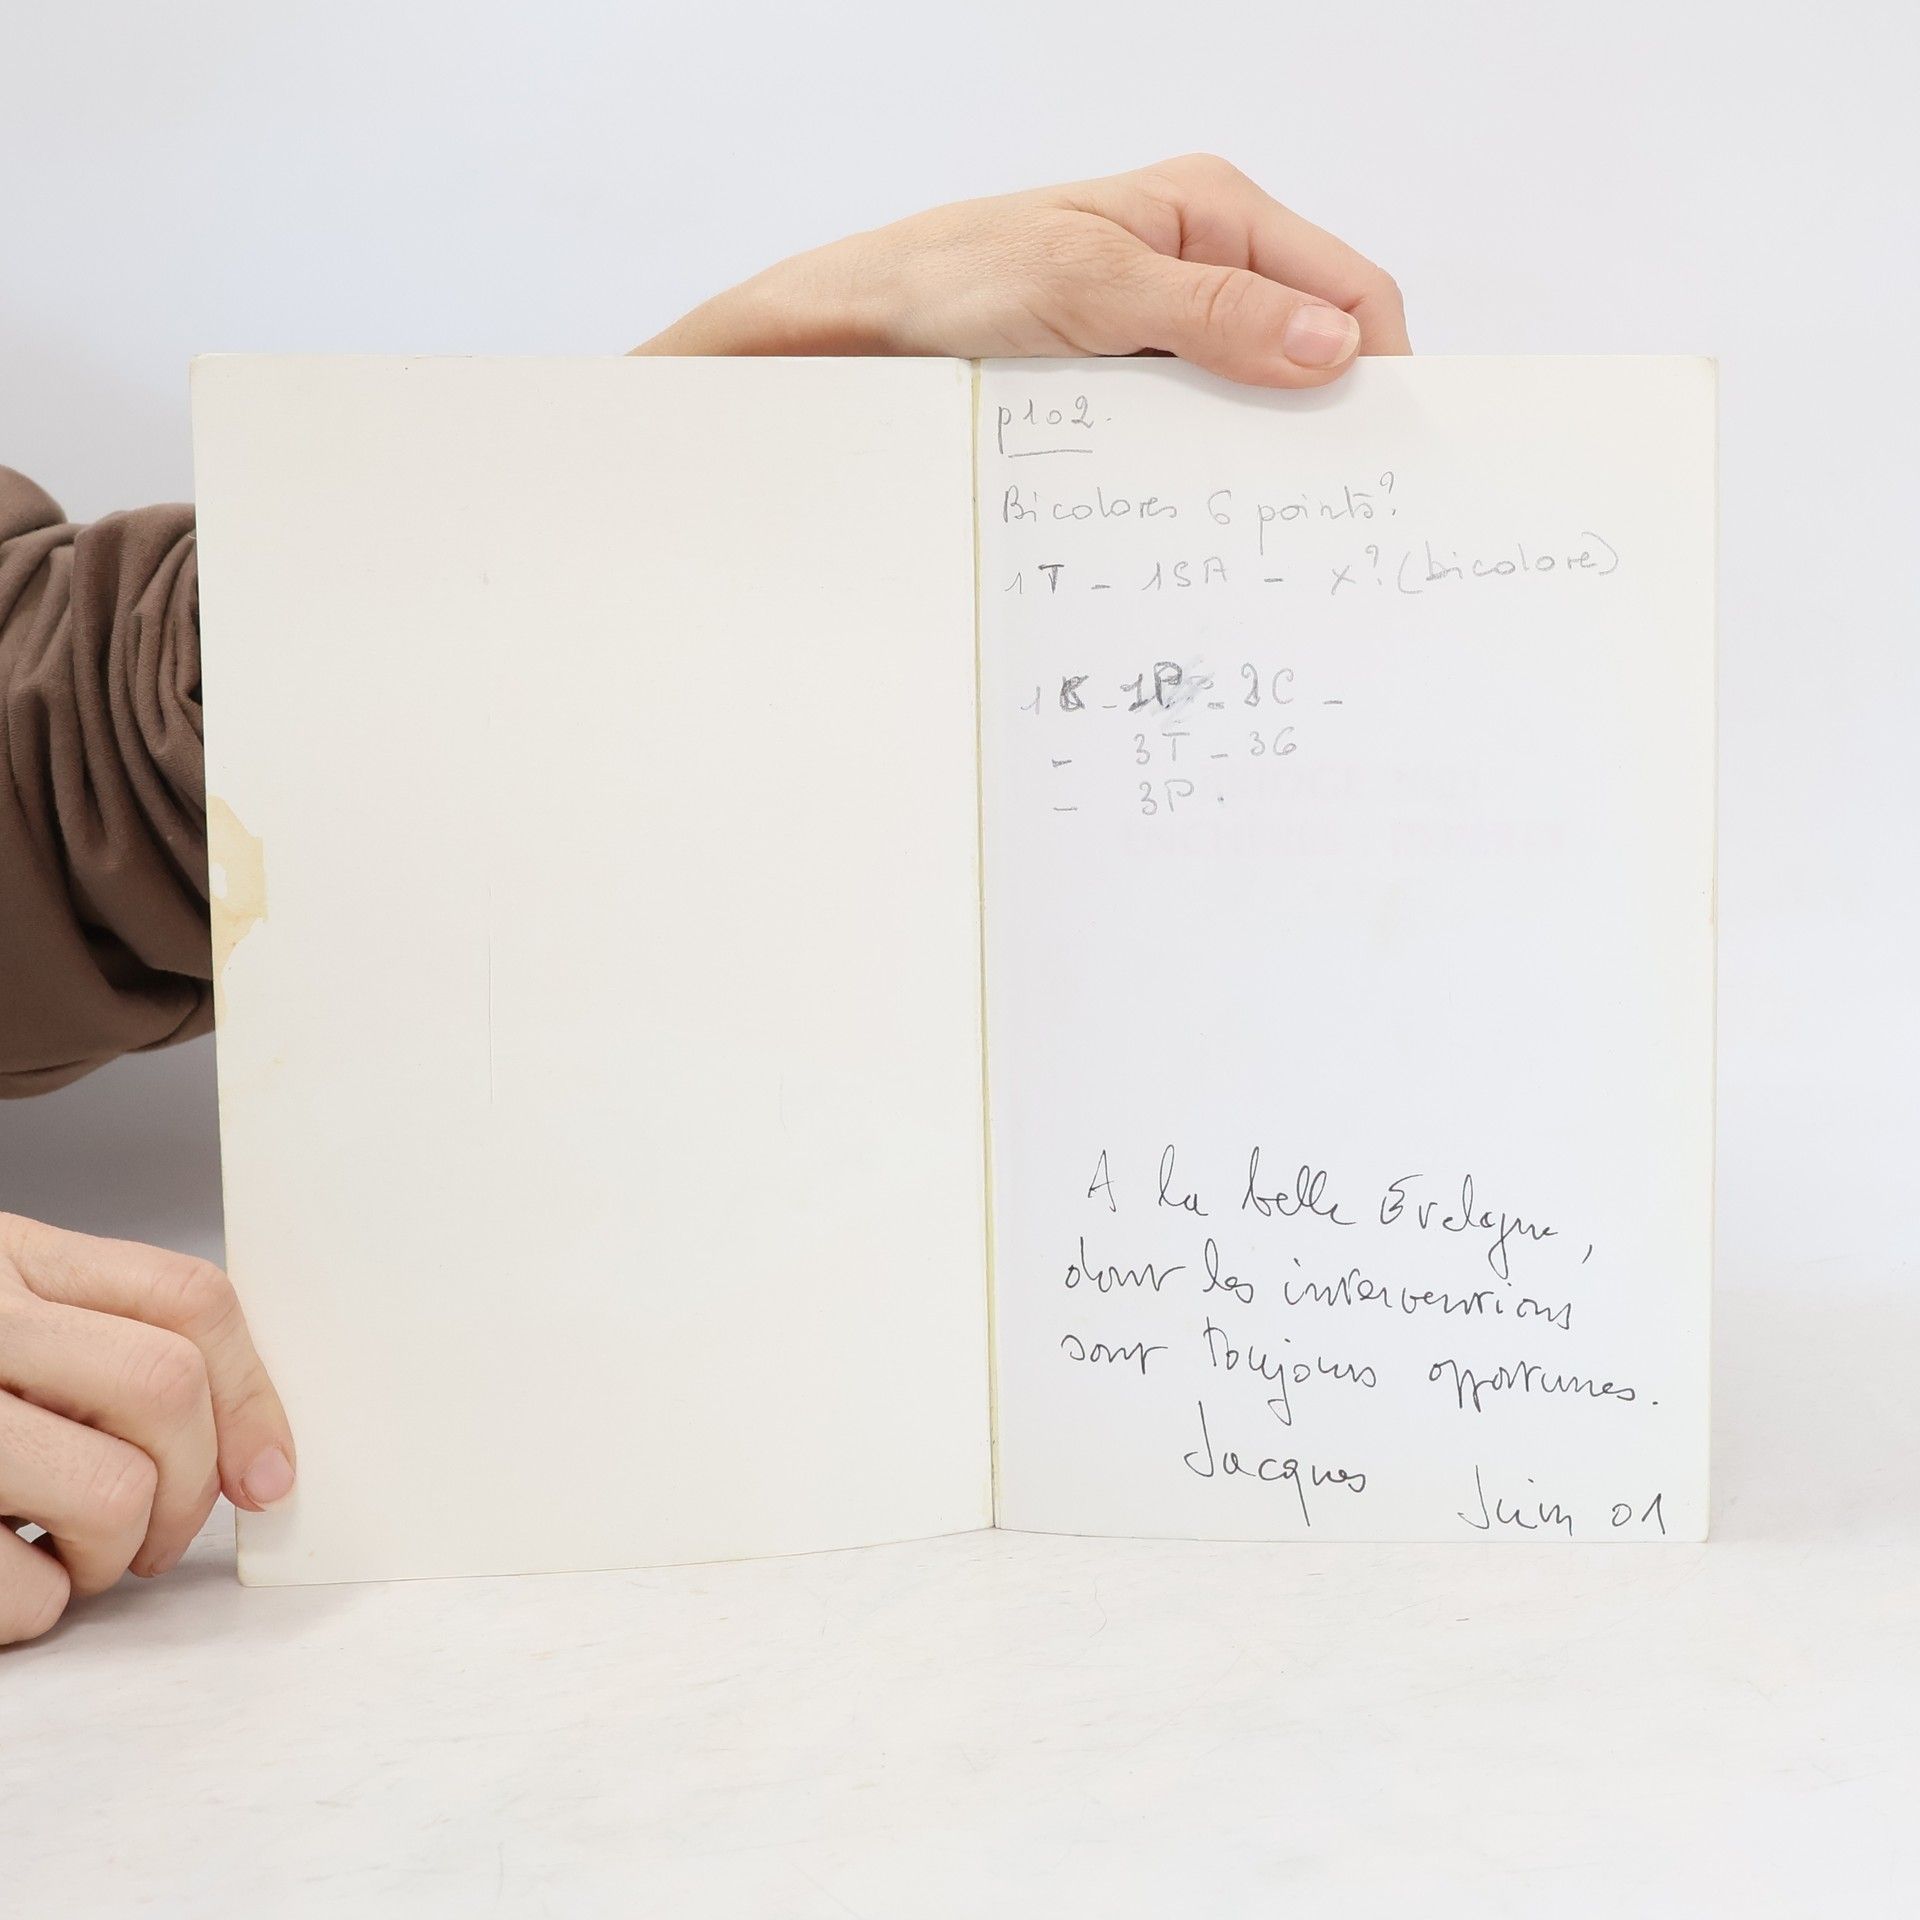 p102.
Bicolores 6 points?
1T - 1SA - x? (bicolore)
1K - 1P - 2C -
- 3T - 36
- 3P.
A la belle Evelyne,
dont les interventions
sont toujours opportunes.
Jacques
Juin 01